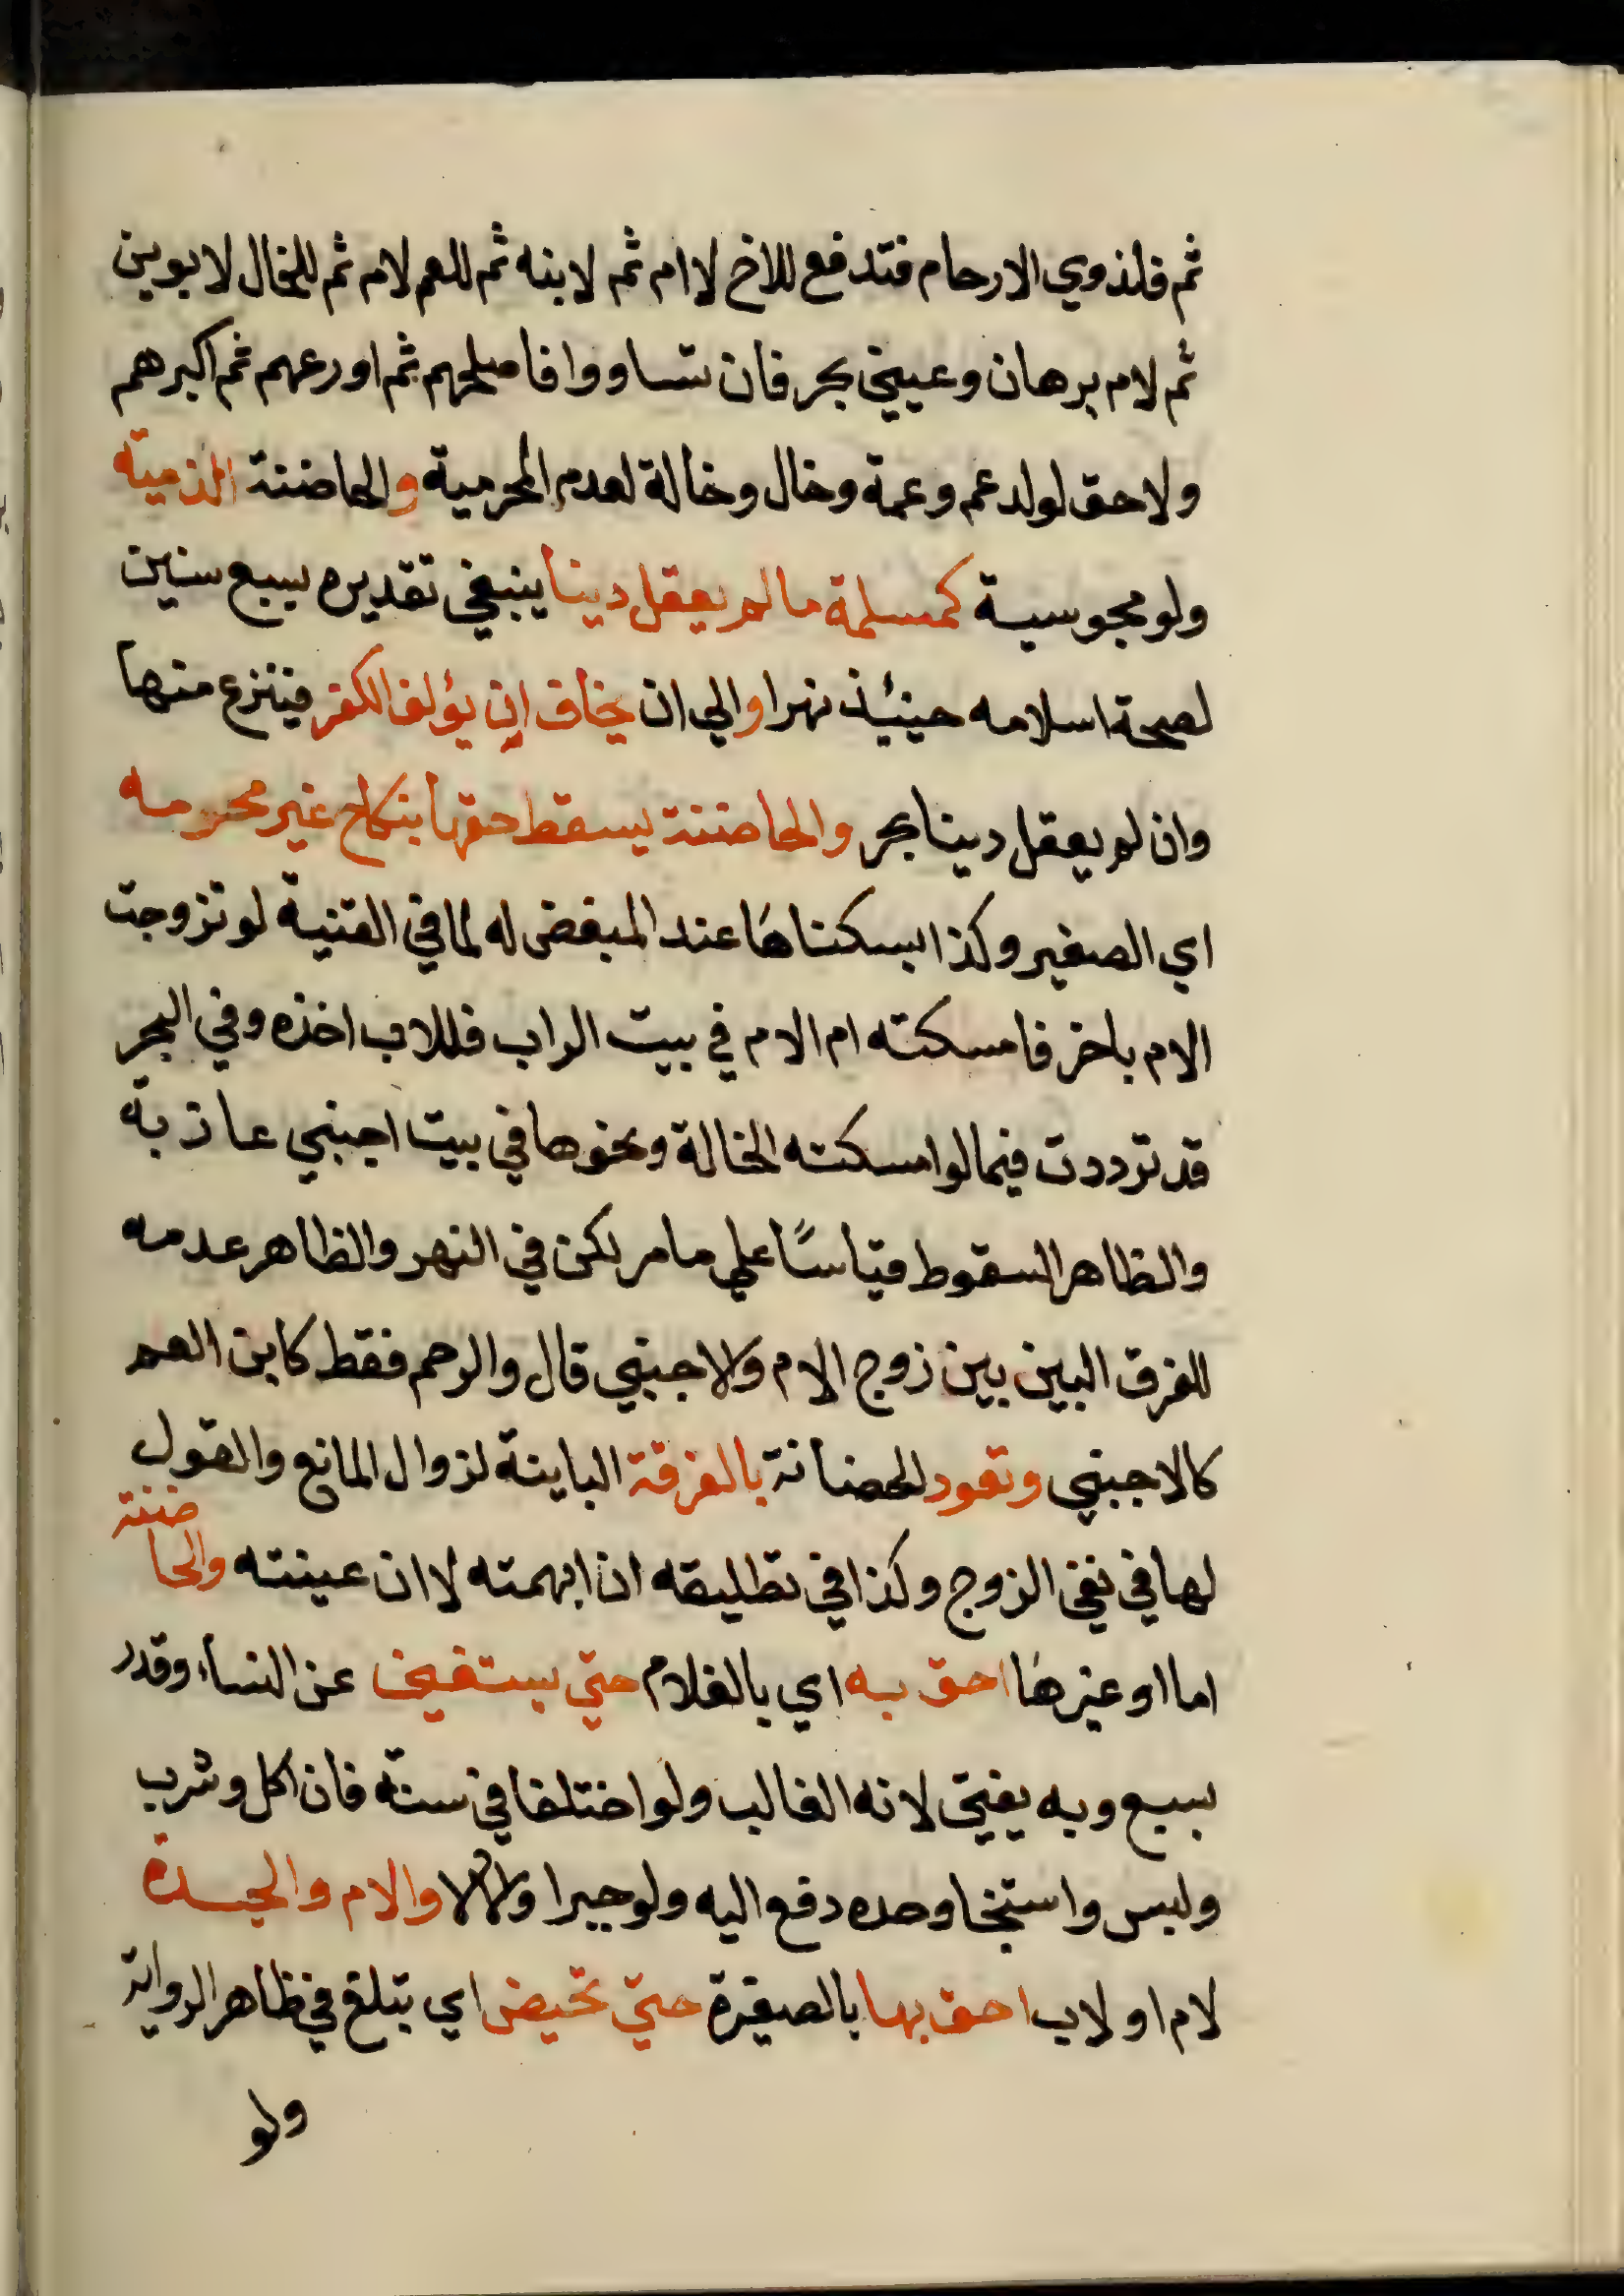 ثم فلذوي الارحام فتدفع للاخ لاام ثم لابنه ثم للعم لام ثم للخال لابوين
ثم لام برهان وعيني بحر فان تساووا فاصلحهم ثم اورعهم ثم اكبرهم
ولاحق لولد عم وعمة وخال وخالة لعدم المحرمية والحاضنة الذمية
ولو مجوسية كمسلمة مالم يعقل دينا ينبغي تقديره بسبع سنين
لصحة اسلامه حينئذ نهر اوالي ان يخاف ان يؤلف الكفر فينزع منها
وان لم يعقل دينا بحر والحاضنة يسقط حقها بنكاح غير محرمه
اي الصغير وكذا بسكناها عند المبغض له لما في القنية لو تزوجت
الام باخر فامسكته ام الام في بيت الراب فللاب اخذه وفي البحر
قد ترددت فيما لو امسكته الخالة ونحوها في بيت اجنبي عازبة
والظاهر السقوط قياسًا علي مامر لكن في النهر والظاهر عدمه
للفرق البين بين زوج الام والاجنبي قال والرحم فقط كابن العم
كالاجنبي وتعود الحضانة بالفرقة الباينة لزوال المانع والقول
لها في نفي الزوج وكذا في تطليقه ان ابهمته لا ان عينته والحاضنة
اما اوغيرها احق به اي بالغلام حتي يستغني عن النساء وقدر
بسبع وبه يفتي لانه الغالب ولو اختلفا في سنه فان اكل وشرب
ولبس واستنجا وحده دفع اليه ولو جبرا والا لا والام والجدة
لام او لاب احق بها بالصغيرة حتي تحيض اي تبلغ في ظاهر الرواية
ولو